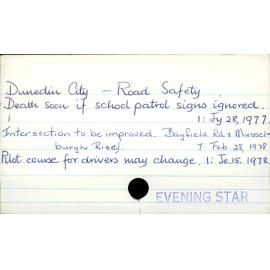 Dunedin City - Road Safety
Death soon if school patrol signs ignored.
1: Jy 28, 1977.
Intersection to be improved. Bayfield Rd & Mussel-
burgh Rise).
7: Feb. 23, 1978
Pilot course for drivers may change. 1: Je. 15. 1978
EVENING STAR